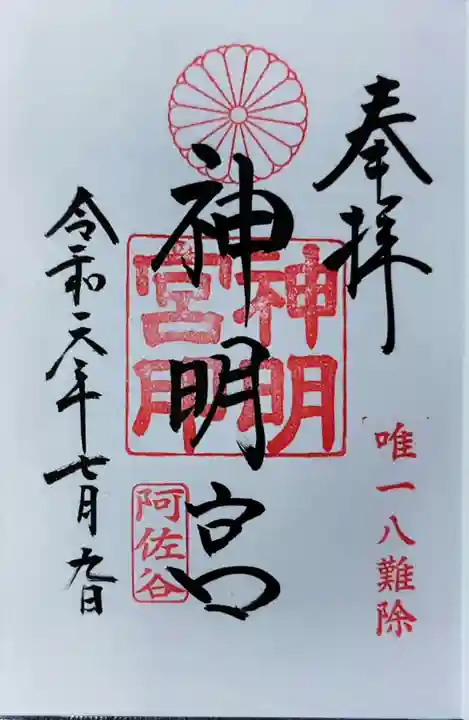 奉拝
唯一八難除
神明宮
神明
宮印
阿佐谷
令和六年七月九日